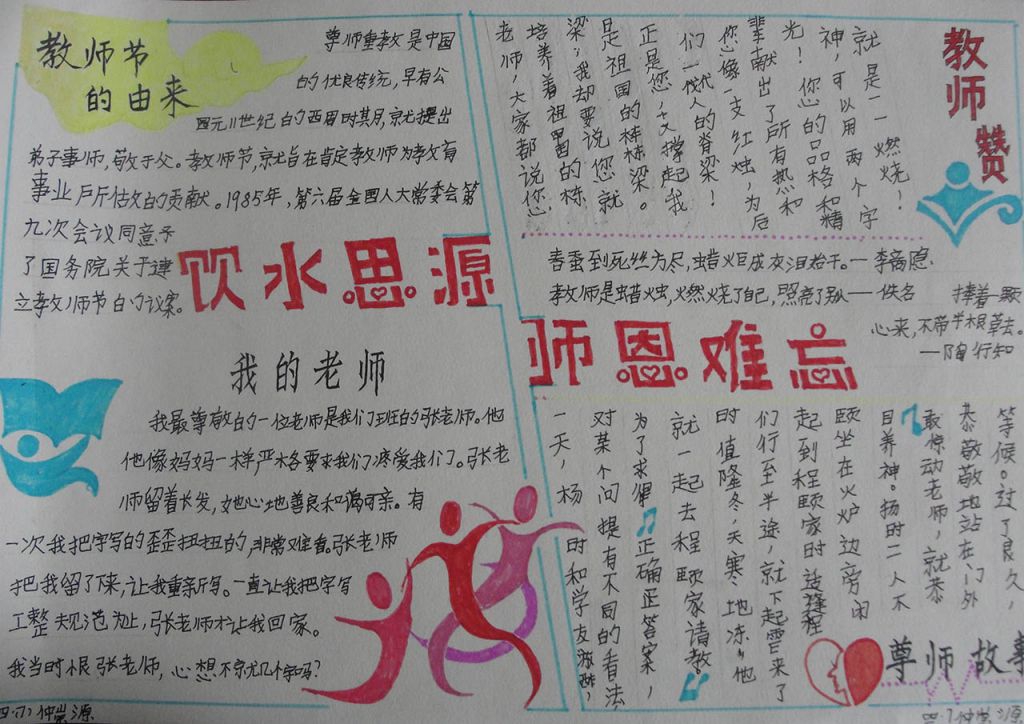 教师节
的由来
尊师重教是中国
的优良传统，早有公
元11世纪的西周时其月，就提出
弟子事师，敬于父。教师节，就旨在肯定教师为教育
事业户所估攵的贡献。1985年，第六届全国人大常委会第
九次会议同意予
了国务院关于建
立教师节的议案。
饮水思源
我的老师
我最尊敬的一位老师是我们班的张老师。他
他像妈妈一样，严格要求我们，疼爱我们。张老
师留着长发，她心地善良和谒可亲。有
一次我把字写的歪歪扭扭的，非常难看。张老师
把我留了下来，让我重新写。一直让我把字写
工整规范为止，张老师才让我回家。
我当时恨张老师，心想不就几个字吗？
四.(7)仲崇源
教师赞
老师，大家都说您
培养着祖国的栋
梁；我却要说您就
是祖国的栋梁。
正是您，支撑起我
们一代代人的脊梁！
您像一支红烛，为后
辈献出了所有热和
光！您的品格和精
神，可以用两个字
就是一一燃烧！
春蚕到死丝方尽，蜡炬成灰泪始干。—李商隐.
教师是蜡烛，燃烧了自己，照亮了别人—佚名
捧着一颗
心来，不带半根草去。
—陶行知
师恩难忘
一天，杨时和学友游酢，
对某个问提有不同的看法
为了求得正确正答案，
就一起去程颐家请教
时值隆冬，天寒地冻，他
们行至半途，就下起雪来了
起到程颐家时适逢程
颐坐在火炉边旁闭
目养神。扬时二人不
敢惊动老师，就恭
恭敬敬地站在门外
等候。过了良久，
尊师故事
四.7仲崇源